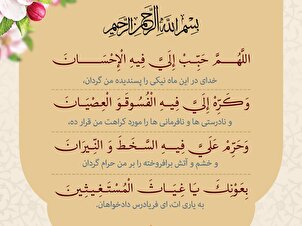 بِسْمِ اللَّهِ الرَّحْمَنِ الرَّحِيمِ
اللَّهُمَّ حَبِّبْ إِلَيَّ فِيهِ الْإِحْسَانَ
خدای در این ماه نیکی را پسندیده من گردان،
وَ كَرِّهْ إِلَيَّ فِيهِ الْفُسُوقَ وَ الْعِصْيَانَ
و نادرستی ها و نافرمانی ها را مورد کراهت من قرار ده،
وَ حَرِّمْ عَلَيَّ فِيهِ السَّخَطَ وَ النِّيرَانَ
و خشم و آتش برافروخته را بر من حرام گردان
بِعَوْنِكَ يَا غِيَاثَ الْمُسْتَغِيثِينَ
به یاری ات، ای فریادرس دادخواهان.